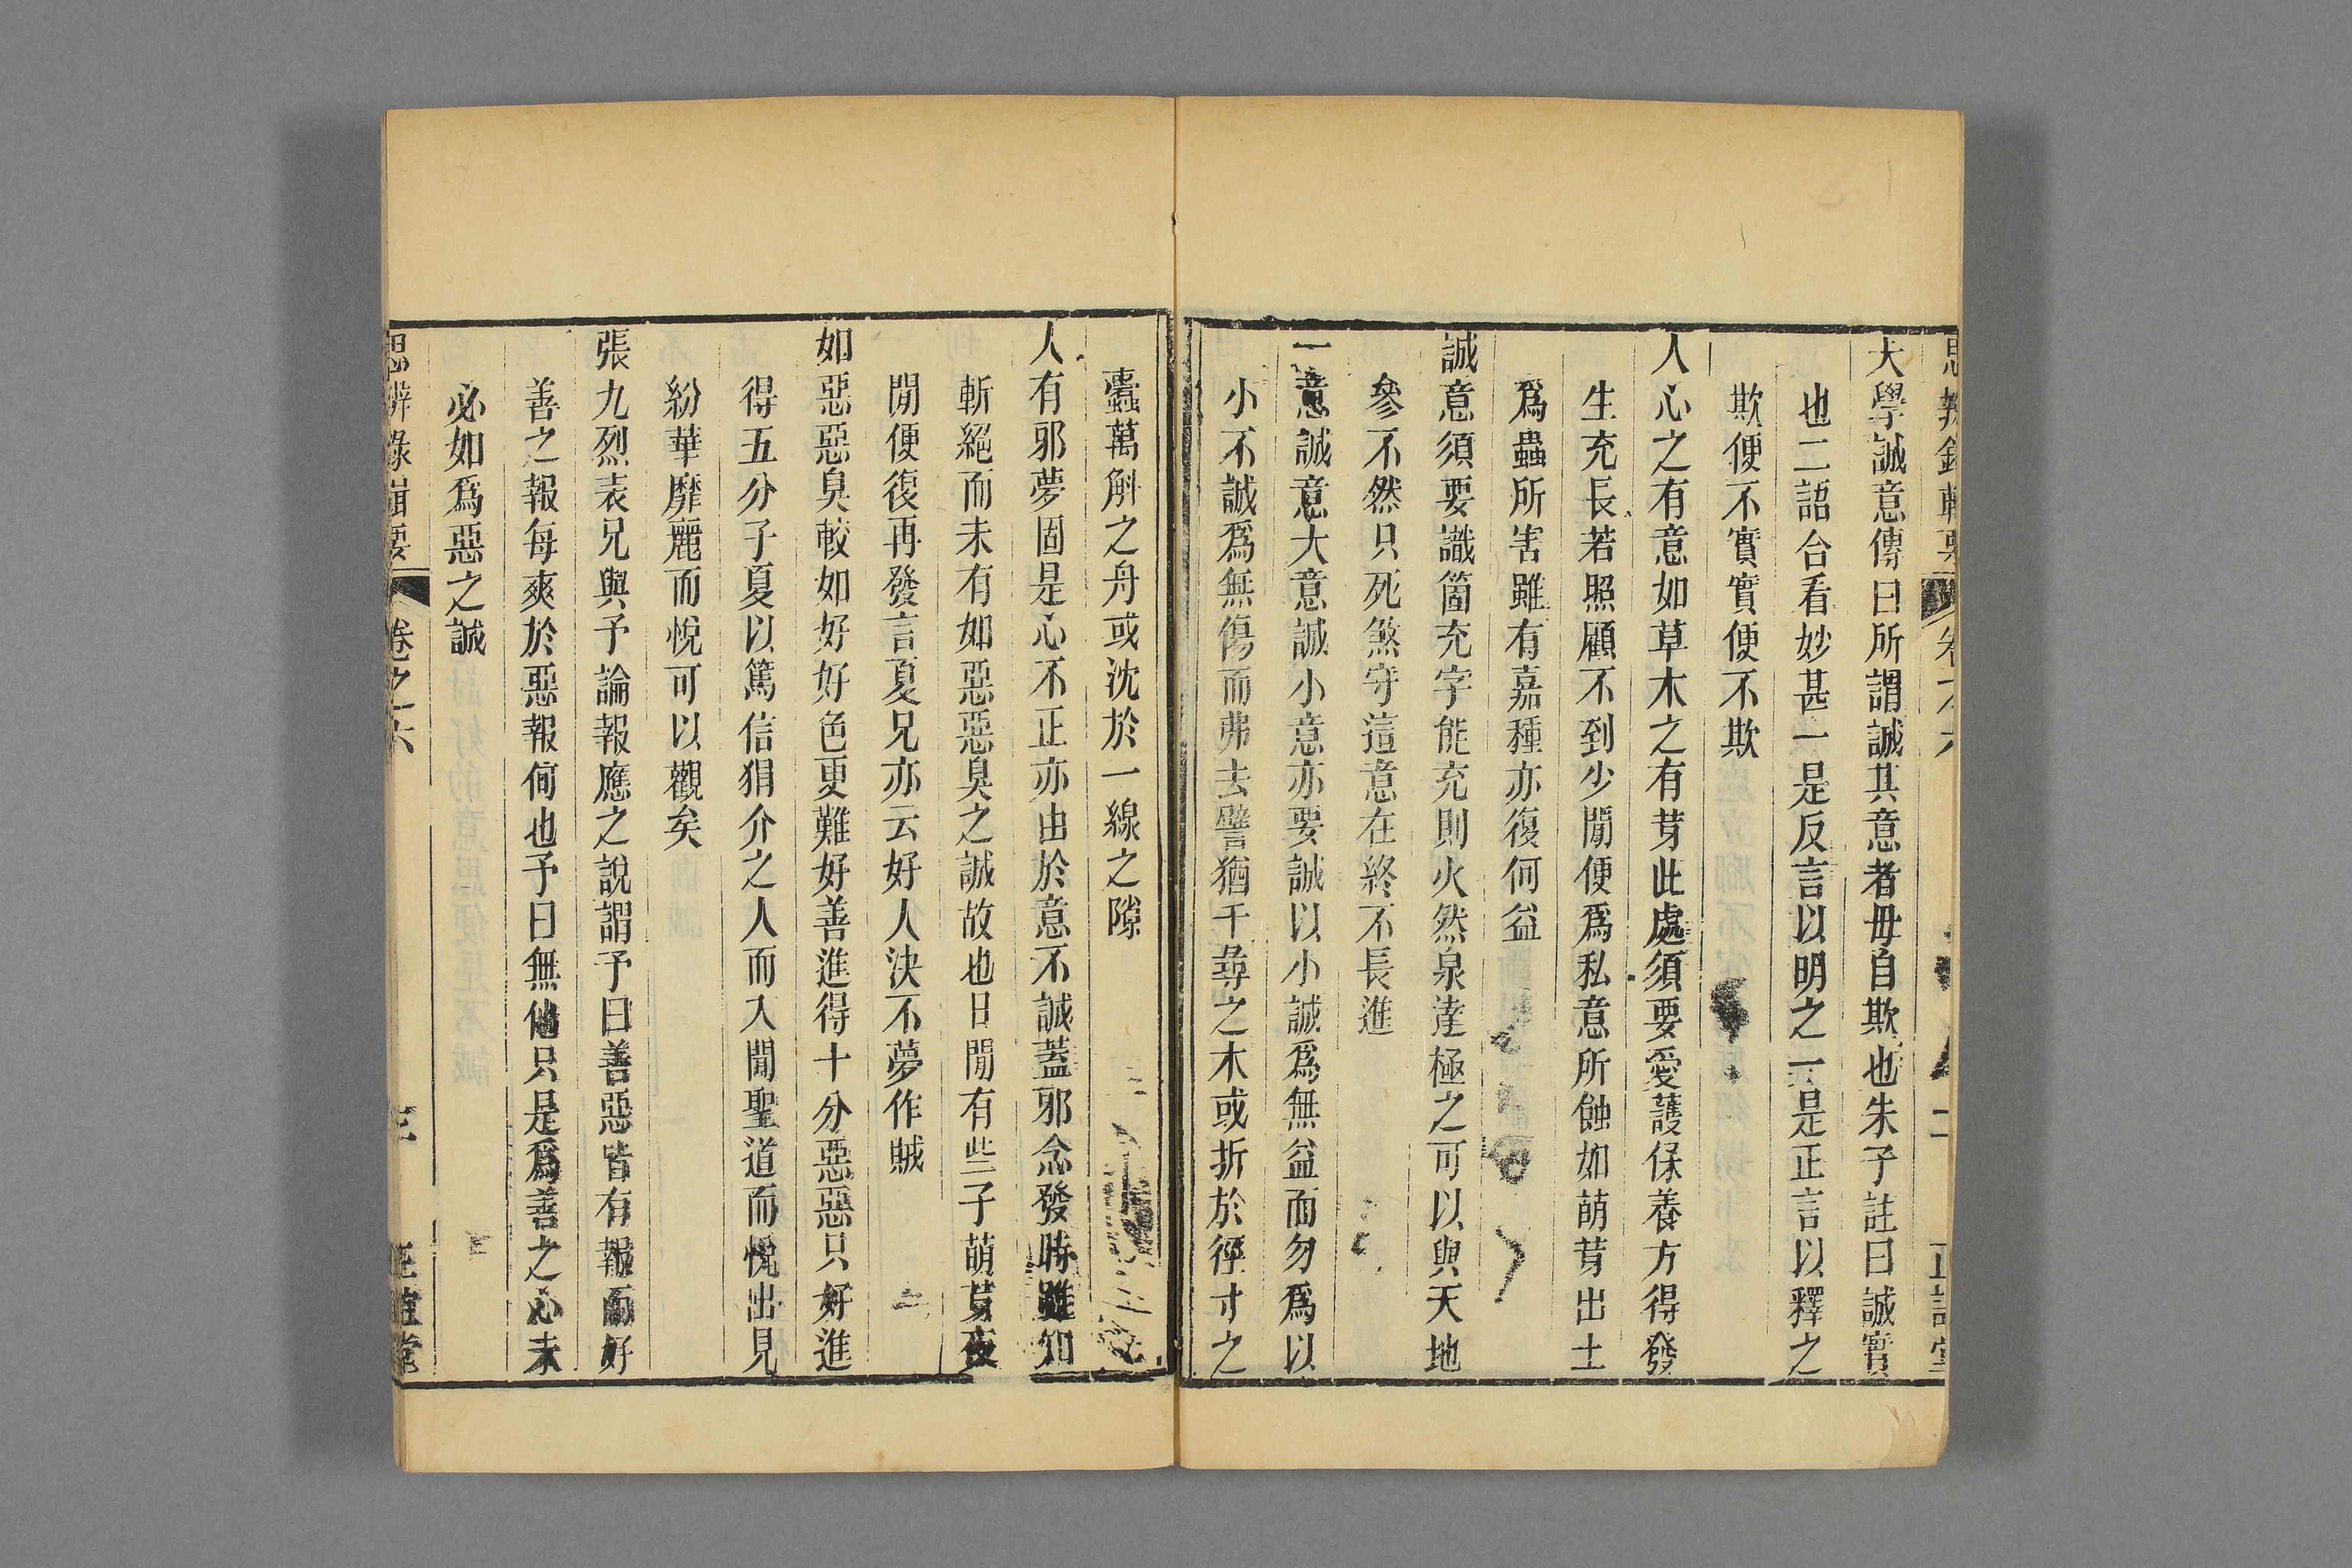 大學誠意傳曰所謂誠其意者毋自欺也朱子註曰誠實
也二語合看妙甚一是反言以明之一是正言以釋之
欺便不實實便不欺
人心之有意如草木之有芽此處須要愛護保養方得發
生充長若照顧不到少閒便爲私意所蝕如萌芽出土
爲蟲所害雖有嘉種亦復何益
誠意須要識箇充字能充則火然泉達極之可以與天地
參不然只死煞守這意在終不長進
一意誠意大意誠小意亦要誠以小誠爲無益而勿爲以
小不誠爲無傷而弗去譬猶干尋之木或折於徑寸之
蠹萬斛之舟或沈於一線之隙
人有邪夢固是心不正亦由於意不誠蓋邪念發時雖知
斬絕而未有如惡惡臭之誠故也日閒有些子萌芽夜
閒便復再發言夏兄亦云好人決不夢作賊
如惡惡臭較如好好色更難好善進得十分惡惡只好進
得五分子夏以篤信狷介之人而入聞聖道而悅出見
紛華靡麗而悅可以觀矣
張九烈表兄與予論報應之說謂予曰善惡皆有報而好
善之報每爽於惡報何也予曰無他只是爲善之心未
必如爲惡之誠
思辨錄輯要 卷之六 三 正誼堂